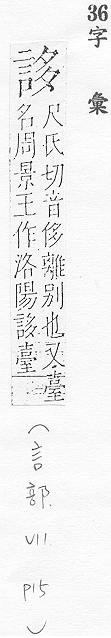 36 字彙
誃
尺氏切音侈離別也又臺
名周景王作洛陽誃臺
(言部. VII P15)